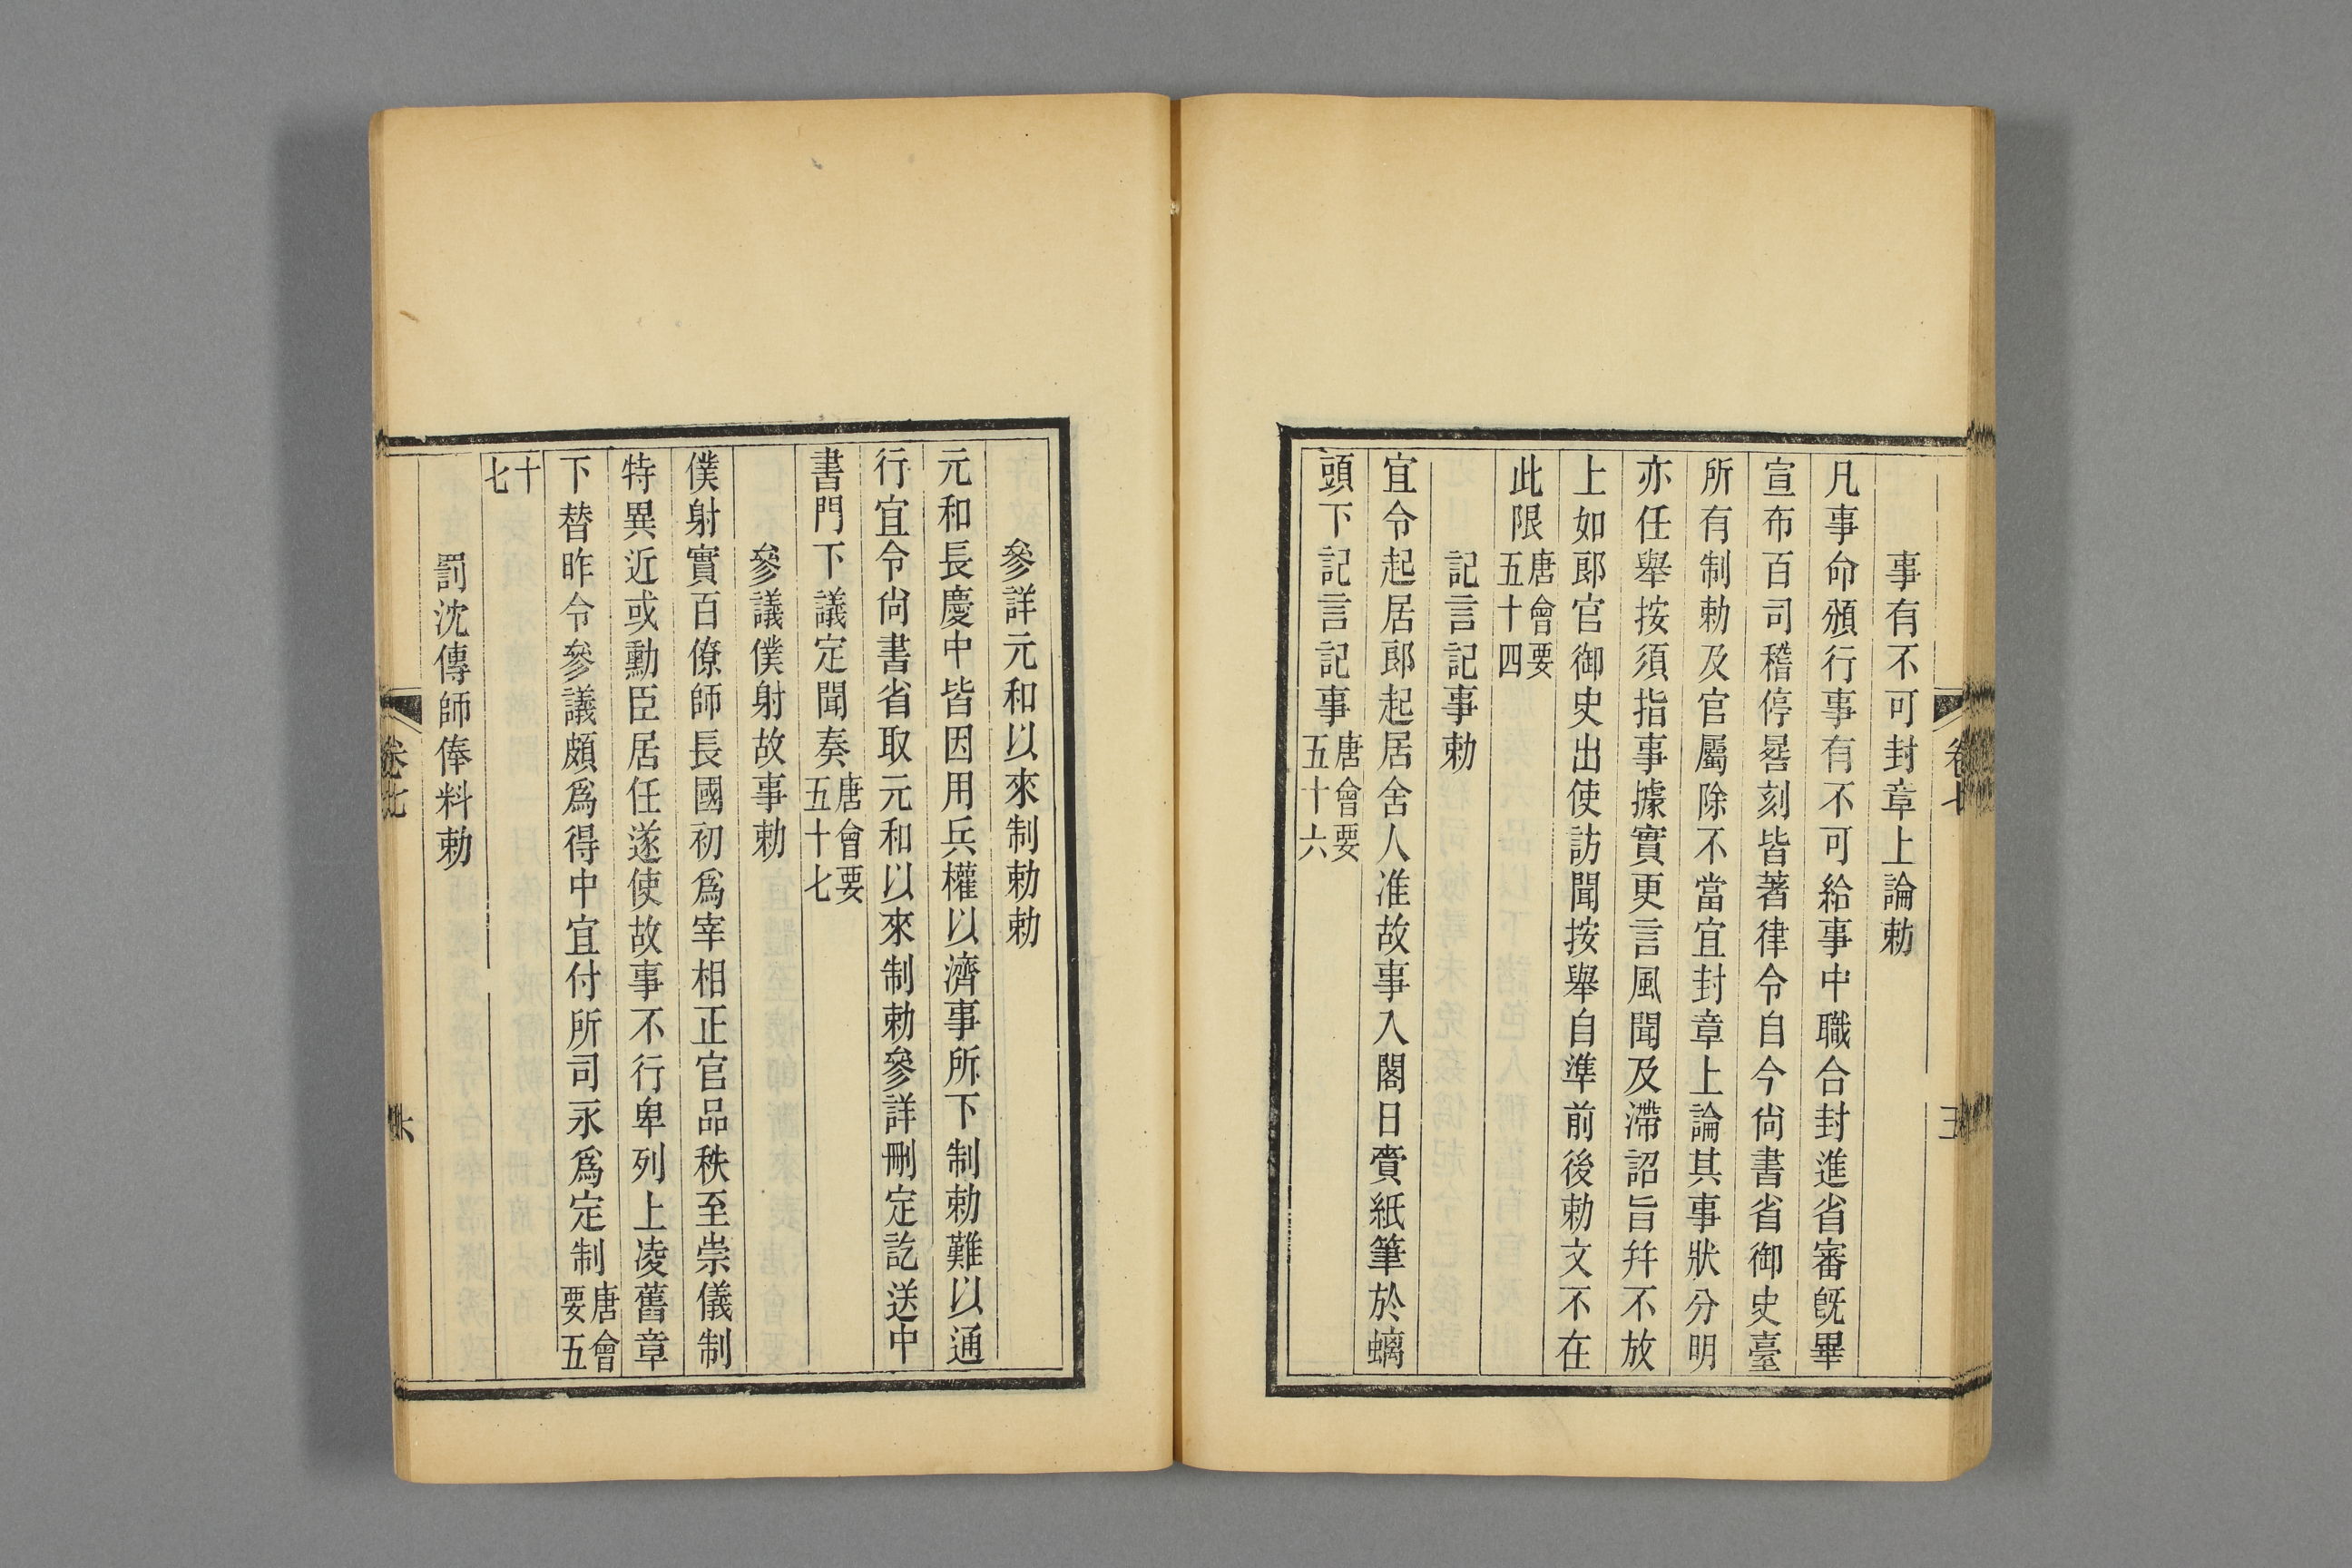 事有不可封章上論勅
凡事命頒行事有不可給事中職合封進省審旣畢
宣布百司稽停晷刻皆著律令自今尙書省御史臺
所有制勅及官屬除不當宜封章上論其事狀分明
亦任舉按須指事據實更言風聞及滯詔旨幷不放
上如郞官御史出使訪聞按舉自準前後勅文不在
此限唐會要五十四
記言記事勅
宜令起居郞起居舍人准故事入閣日賫紙筆於螭
頭下記言記事唐會要五十六
參詳元和以來制勅勅
元和長慶中皆因用兵權以濟事所下制勅難以通
行宜令尙書省取元和以來制勅參詳刪定訖送中
書門下議定聞奏唐會要五十七
參議僕射故事勅
僕射實百僚師長國初爲宰相正官品秩至崇儀制
特異近或勳臣居任遂使故事不行卑列上凌舊章
下替昨令參議頗爲得中宜付所司永爲定制唐會要五
十七
罰沈傳師俸料勅
卷七